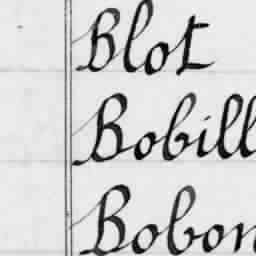 Blot
Bobill
Bobon